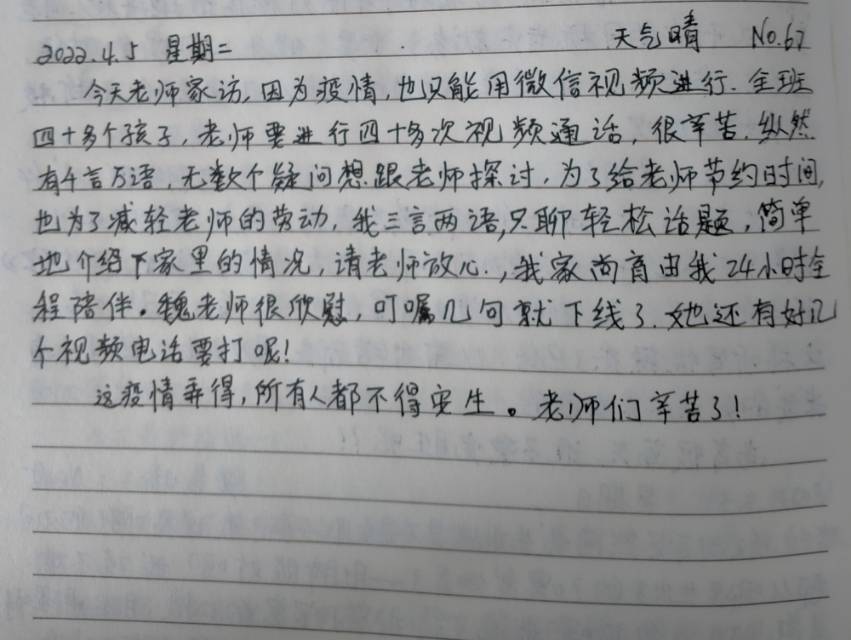 2022.4.5 星期二 天气晴 No.67
今天老师家访,因为疫情,也只能用微信视频进行.全班
四十多个孩子,老师要进行四十多次视频通话,很辛苦.纵然
有千言万语,无数个疑问想跟老师探讨,为了给老师节约时间,
也为了减轻老师的劳动,我三言两语,只聊轻松话题,简单
地介绍下家里的情况,请老师放心.,我家尚育由我24小时全
程陪伴。魏老师很欣慰,叮嘱几句就下线了.她还有好几
个视频电话要打呢!
这疫情弄得,所有人都不得安生。老师们辛苦了!